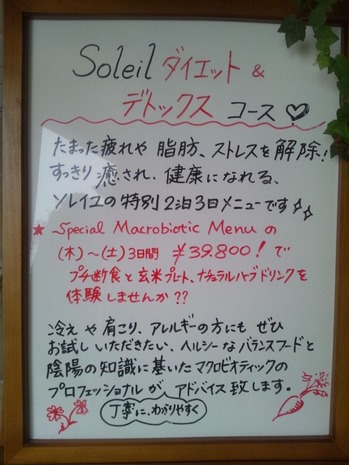 Soleil ダイエット &
デトックス コース♡
たまった疲れや 脂肪、ストレスを 解除!
すっきり 癒され、健康になれる、
ソレイユの 特別 2泊3日メニューです☆☆
★ Special Macrobiotic Menu の
(木)~(土)3日間 ¥39.800! で
プチ断食と玄米プレート、ナチュラルハーブドリンクを
体験しませんか??
冷え や 肩こり、アレルギーの方にも ぜひ
お試し いただきたい、ヘルシーなバランスフードと
陰陽の知識に基いたマクロビオティックの
プロフェッショナルが アドバイス致します。
丁寧に、わかりやすく